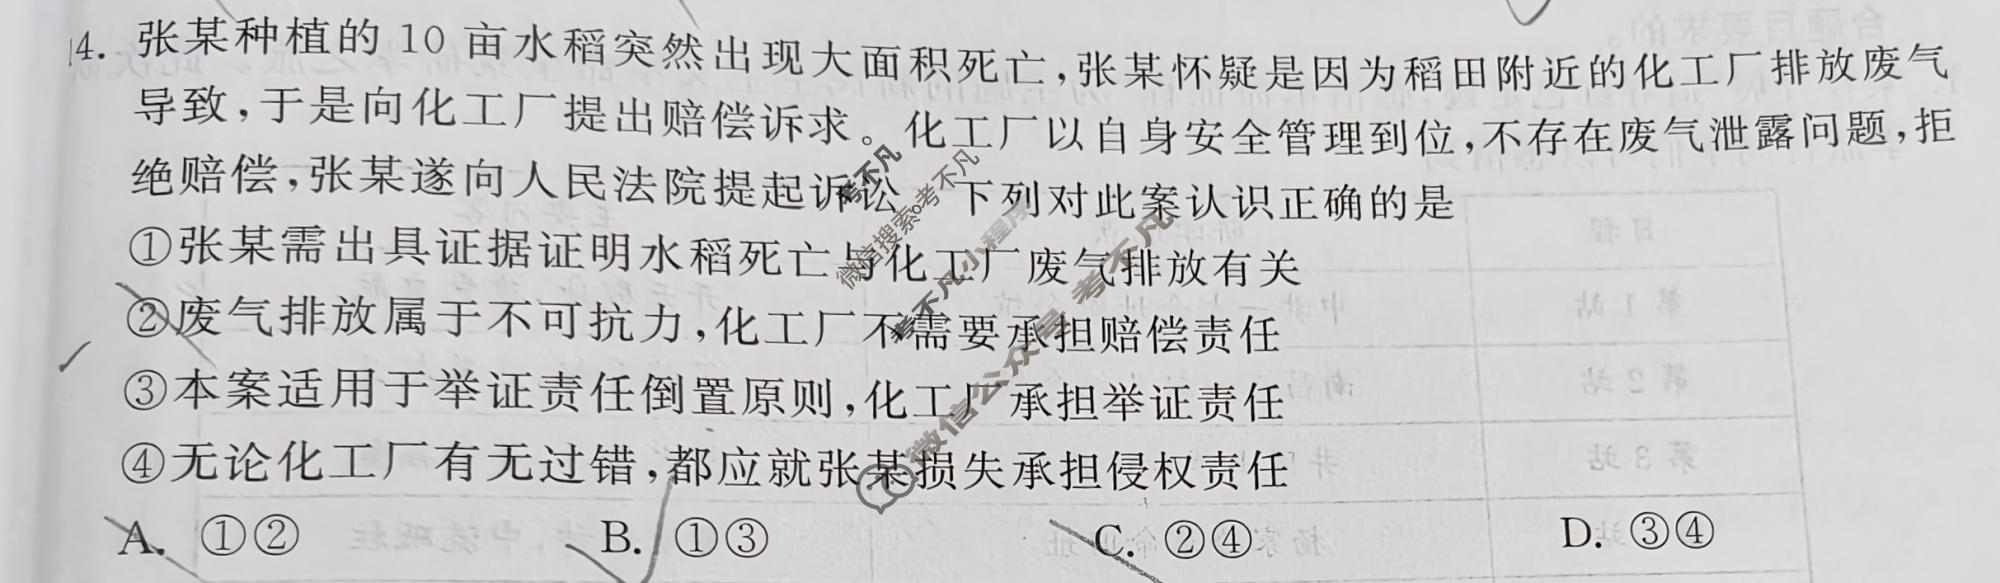 14. 张某种植的10亩水稻突然出现大面积死亡,张某怀疑是因为稻田附近的化工厂排放废气
导致,于是向化工厂提出赔偿诉求。化工厂以自身安全管理到位,不存在废气泄露问题,拒
绝赔偿,张某遂向人民法院提起诉讼 下列对此案认识正确的是
①张某需出具证据证明水稻死亡与化工厂废气排放有关
②废气排放属于不可抗力,化工厂不需要承担赔偿责任
③本案适用于举证责任倒置原则,化工厂承担举证责任
④无论化工厂有无过错,都应就张某损失承担侵权责任
A. ①② B. ①③ C. ②④ D. ③④
考不凡
微信搜索:考不凡
考不凡小程序
微信公众号:考不凡